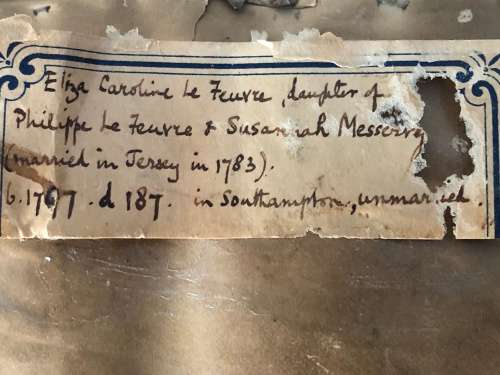 Eliza Caroline Le Feuvre, daughter of
Philippe Le Feuvre & Susannah Messervy
(married in Jersey in 1783).
b. 1797. d 187. in Southampton, unmarried.